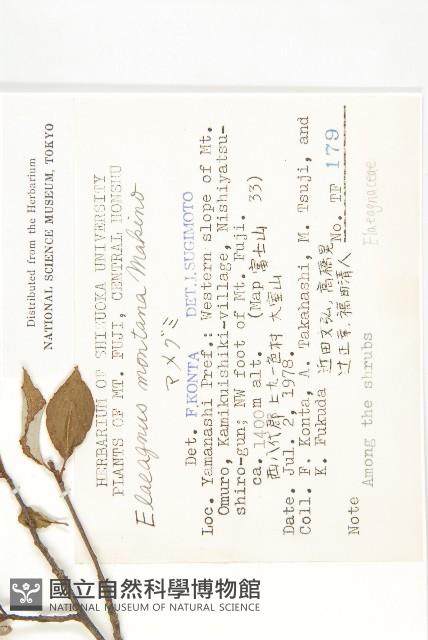 Distributed from the Herbarium
NATIONAL SCIENCE MUSEUM, TOKYO
HERBARIUM OF SHIZUOKA UNIVERSITY
PLANTS OF MT. FUJI, CENTRAL HONSHU
Elaeagnus montana Makino
マメグミ
Det. F.KONTA DET.J.SUGIMOTO
Loc. Yamanashi Pref.: Western slope of Mt.
Omuro, Kamikuishiki-village, Nishiyatsu-
shiro-gun; NW foot of Mt. Fuji.
ca. 1400m alt. (Map 富士山 33)
西八代郡 上九一色村 大室山
Date. Jul. 2, 1978.
Coll. F. Konta, A. Takahashi, M. Tsuji, and
K. Fukuda 近田文弘, 高橋晃
辻正章, 福田清人 No. TF 179
Note Among the shrubs Elaeagnaceae
國立自然科學博物館
NATIONAL MUSEUM OF NATURAL SCIENCE